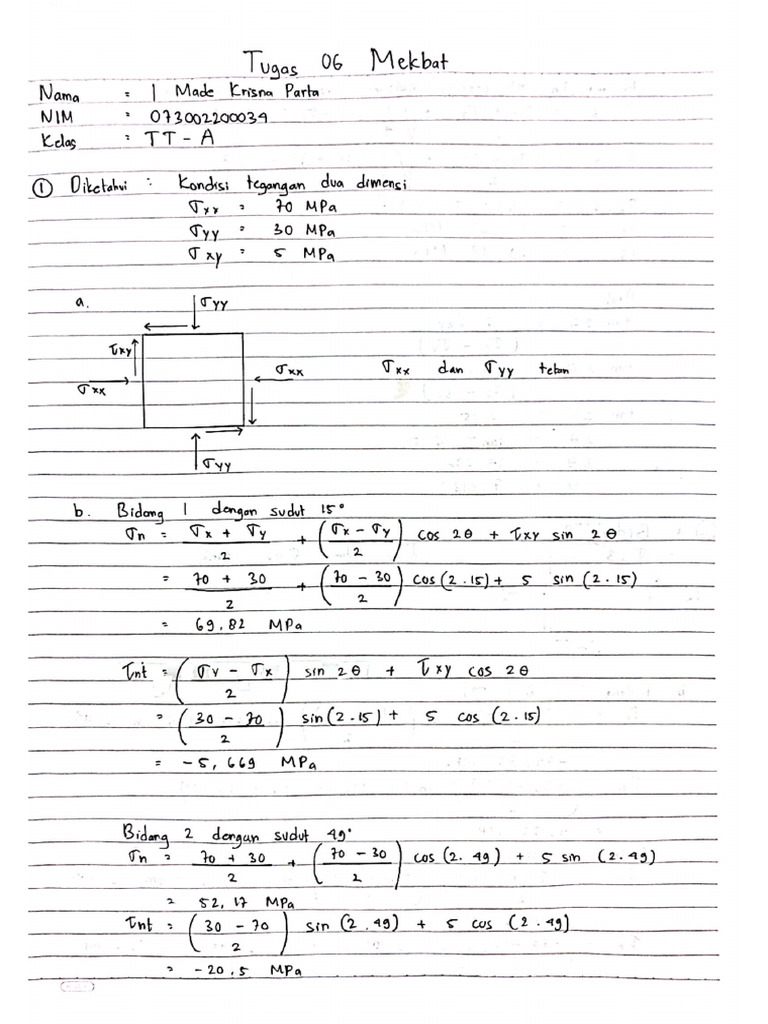 Tugas 06 Mekbat
Nama = I Made Krisna Parta
NIM = 073002200039
Kelas = TT - A
① Diketahui : Kondisi tegangan dua dimensi
σxx = 70 MPa
σyy = 30 MPa
σxy = 5 MPa
a.
σyy
τxy
σxx
σxx
σxx dan σyy tekan
σyy
b. Bidang 1 dengan sudut 15°
σn = σx + σy / 2 + (σx - σy / 2) cos 2θ + τxy sin 2θ
= 70 + 30 / 2 + (70 - 30 / 2) cos (2 . 15) + 5 sin (2 . 15)
= 69,82 MPa
τnt = (σy - σx / 2) sin 2θ + τxy cos 2θ
= (30 - 70 / 2) sin (2 . 15) + 5 cos (2 . 15)
= -5,669 MPa
Bidang 2 dengan sudut 49°
σn = 70 + 30 / 2 + (70 - 30 / 2) cos (2 . 49) + 5 sin (2 . 49)
= 52,17 MPa
τnt = (30 - 70 / 2) sin (2 . 49) + 5 cos (2 . 49)
= -20,5 MPa